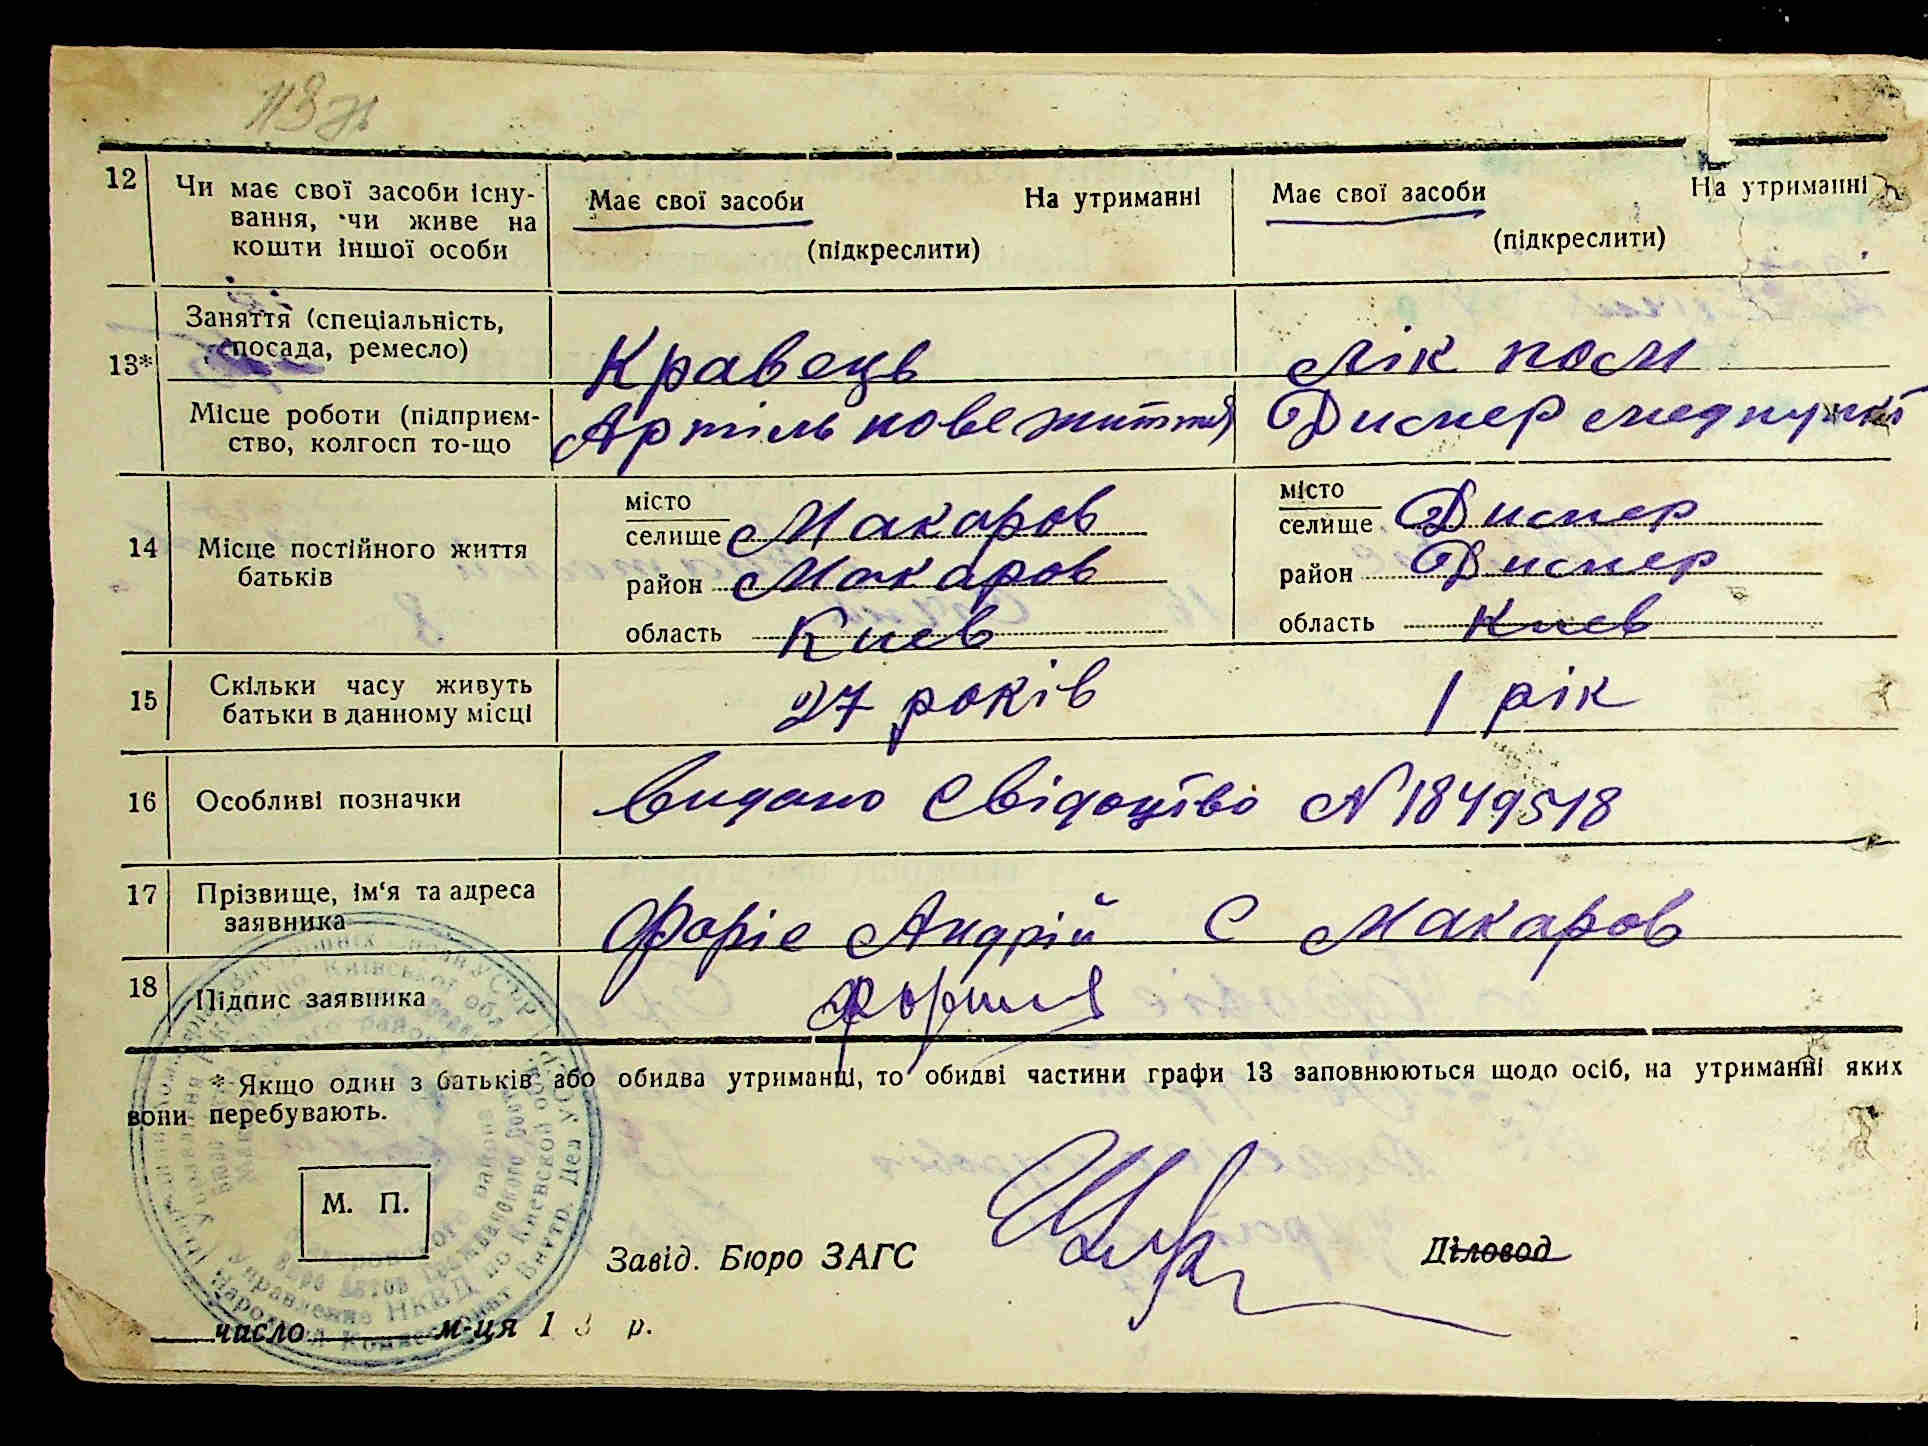 113
12 Чи має свої засоби існу- Має свої засоби На утриманні Має свої засоби На утриманні
вання, чи живе на
кошти іншої особи (підкреслити) (підкреслити)
13* Заняття (спеціальність, посада, ремесло) Кравець Лік пом
Місце роботи (підприєм- Артіль нове життя Димер медпункт
ство, колгосп то-що
14 Місце постійного життя батьків
місто
селище Макаров
район Макаров
область Киев
місто
селище Димер
район Димер
область Киев
15 Скільки часу живуть 27 років 1 рік
батьки в данному місці
16 Особливі позначки Видано Свідоцтво N 1849518
17 Прізвище, ім'я та адреса Форіс Андрій С Макаров
заявника
18 Підпис заявника
* Якщо один з батьків або обидва утриманці, то обидві частини графи 13 заповнюються щодо осіб, на утриманні яких
вони перебувають.
М. П.
Завід. Бюро ЗАГС Діловод
число м-ця 193 р.